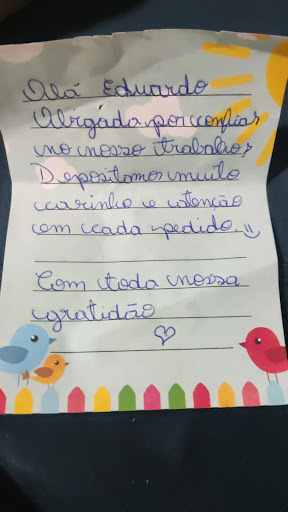 Olá Eduardo
Obrigada por confiar
no nosso trabalho!
Depositamos muito
carinho e atenção
com cada pedido. :)
Com toda nossa
gratidão
♡